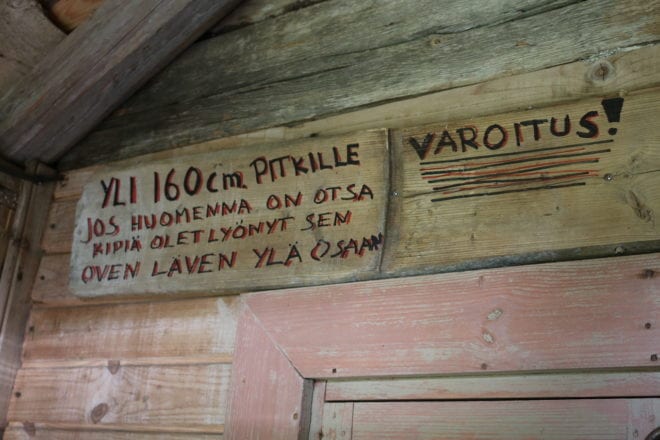 YLI 160cm PITKILLE
JOS HUOMENNA ON OTSA
KIPIÄ OLET LYÖNYT SEN
OVEN LÄVEN YLÄ OSAAN
VAROITUS!